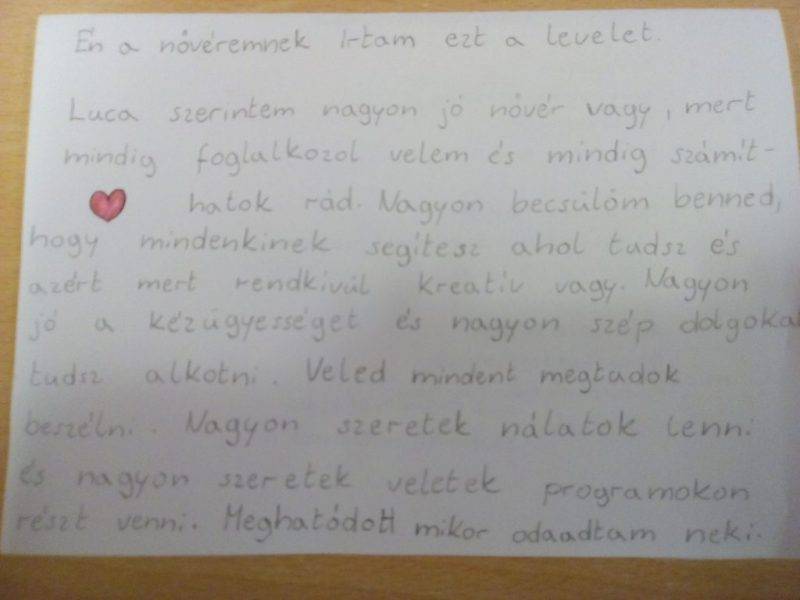 Én a nővéremnek í-tam ezt a levelet.
Luca szerintem nagyon jó nővér vagy, mert
mindig foglalkozol velem és mindig számít-
hatok rád. Nagyon becsülöm benned,
hogy mindenkinek segítesz ahol tudsz és
azért mert rendkívül kreatív vagy. Nagyon
jó a kézügyességet és nagyon szép dolgokat
tudsz alkotni. Veled mindent megtudok
beszélni. Nagyon szeretek nálatok lenni
és nagyon szeretek veletek programokon
részt venni. Meghatódott mikor odaadtam neki.